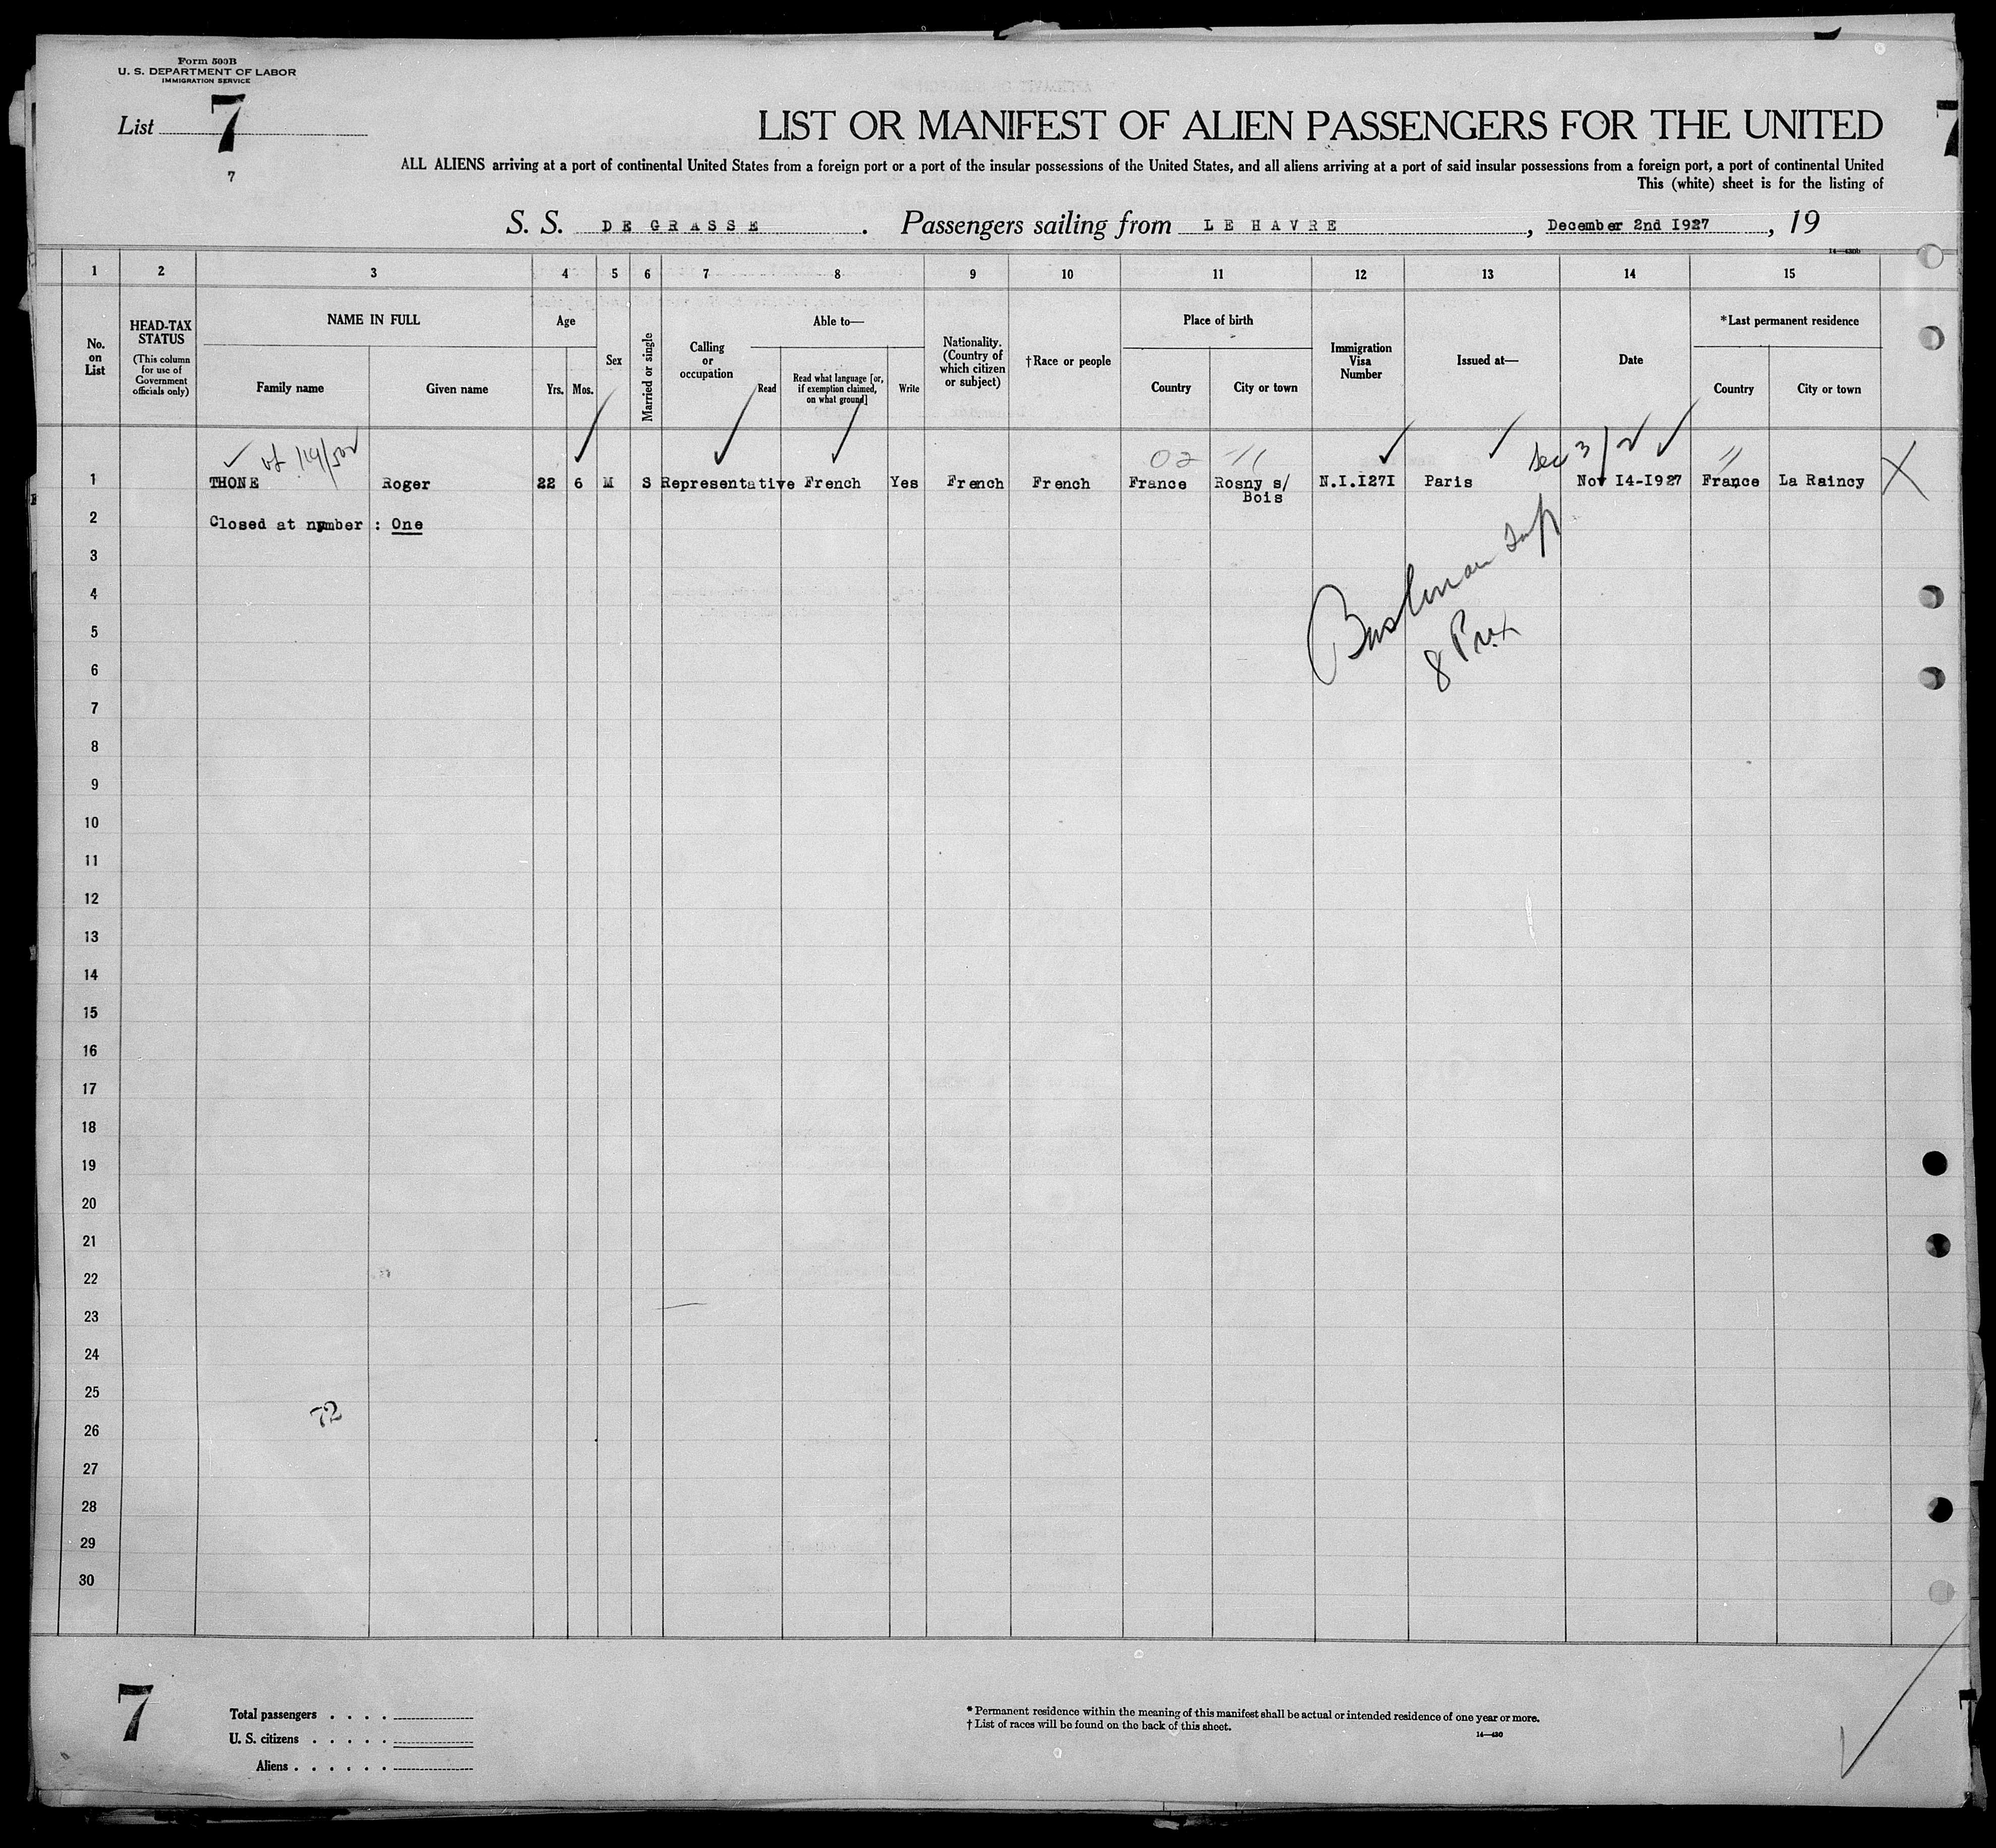 Form 500B
U. S. DEPARTMENT OF LABOR
IMMIGRATION SERVICE
List 7
7
7
LIST OR MANIFEST OF ALIEN PASSENGERS FOR THE UNITED
ALL ALIENS arriving at a port of continental United States from a foreign port or a port of the insular possessions of the United States, and all aliens arriving at a port of said insular possessions from a foreign port, a port of continental United
This (white) sheet is for the listing of
S. S. DE GRASSE . Passengers sailing from LE HAVRE , December 2nd 1927 , 19
14—430b
1 2 3 4 5 6 7 8 9 10 11 12 13 14 15
No. on List
HEAD-TAX STATUS
(This column for use of Government officials only)
NAME IN FULL
Family name
Given name
Age
Yrs.
Mos.
Sex
Married or single
Calling or occupation
Able to—
Read
Read what language [or, if exemption claimed, on what ground]
Write
Nationality. (Country of which citizen or subject)
†Race or people
Place of birth
Country
City or town
Immigration Visa Number
Issued at—
Date
*Last permanent residence
Country
City or town
02 Dec 3/2
1 THONE Roger 22 6 M S Representative French Yes French French France Rosny s/ Bois N.I.1271 Paris Nov 14-1927 France La Raincy X
2 Closed at number : One
3
4
5
6
7
8
9
10
11
12
13
14
15
16
17
18
19
20
21
22
23
24
25
72
26
27
28
29
30
7
Total passengers . . . .
U. S. citizens . . . . .
Aliens . . . . . .
* Permanent residence within the meaning of this manifest shall be actual or intended residence of one year or more.
† List of races will be found on the back of this sheet.
14—430